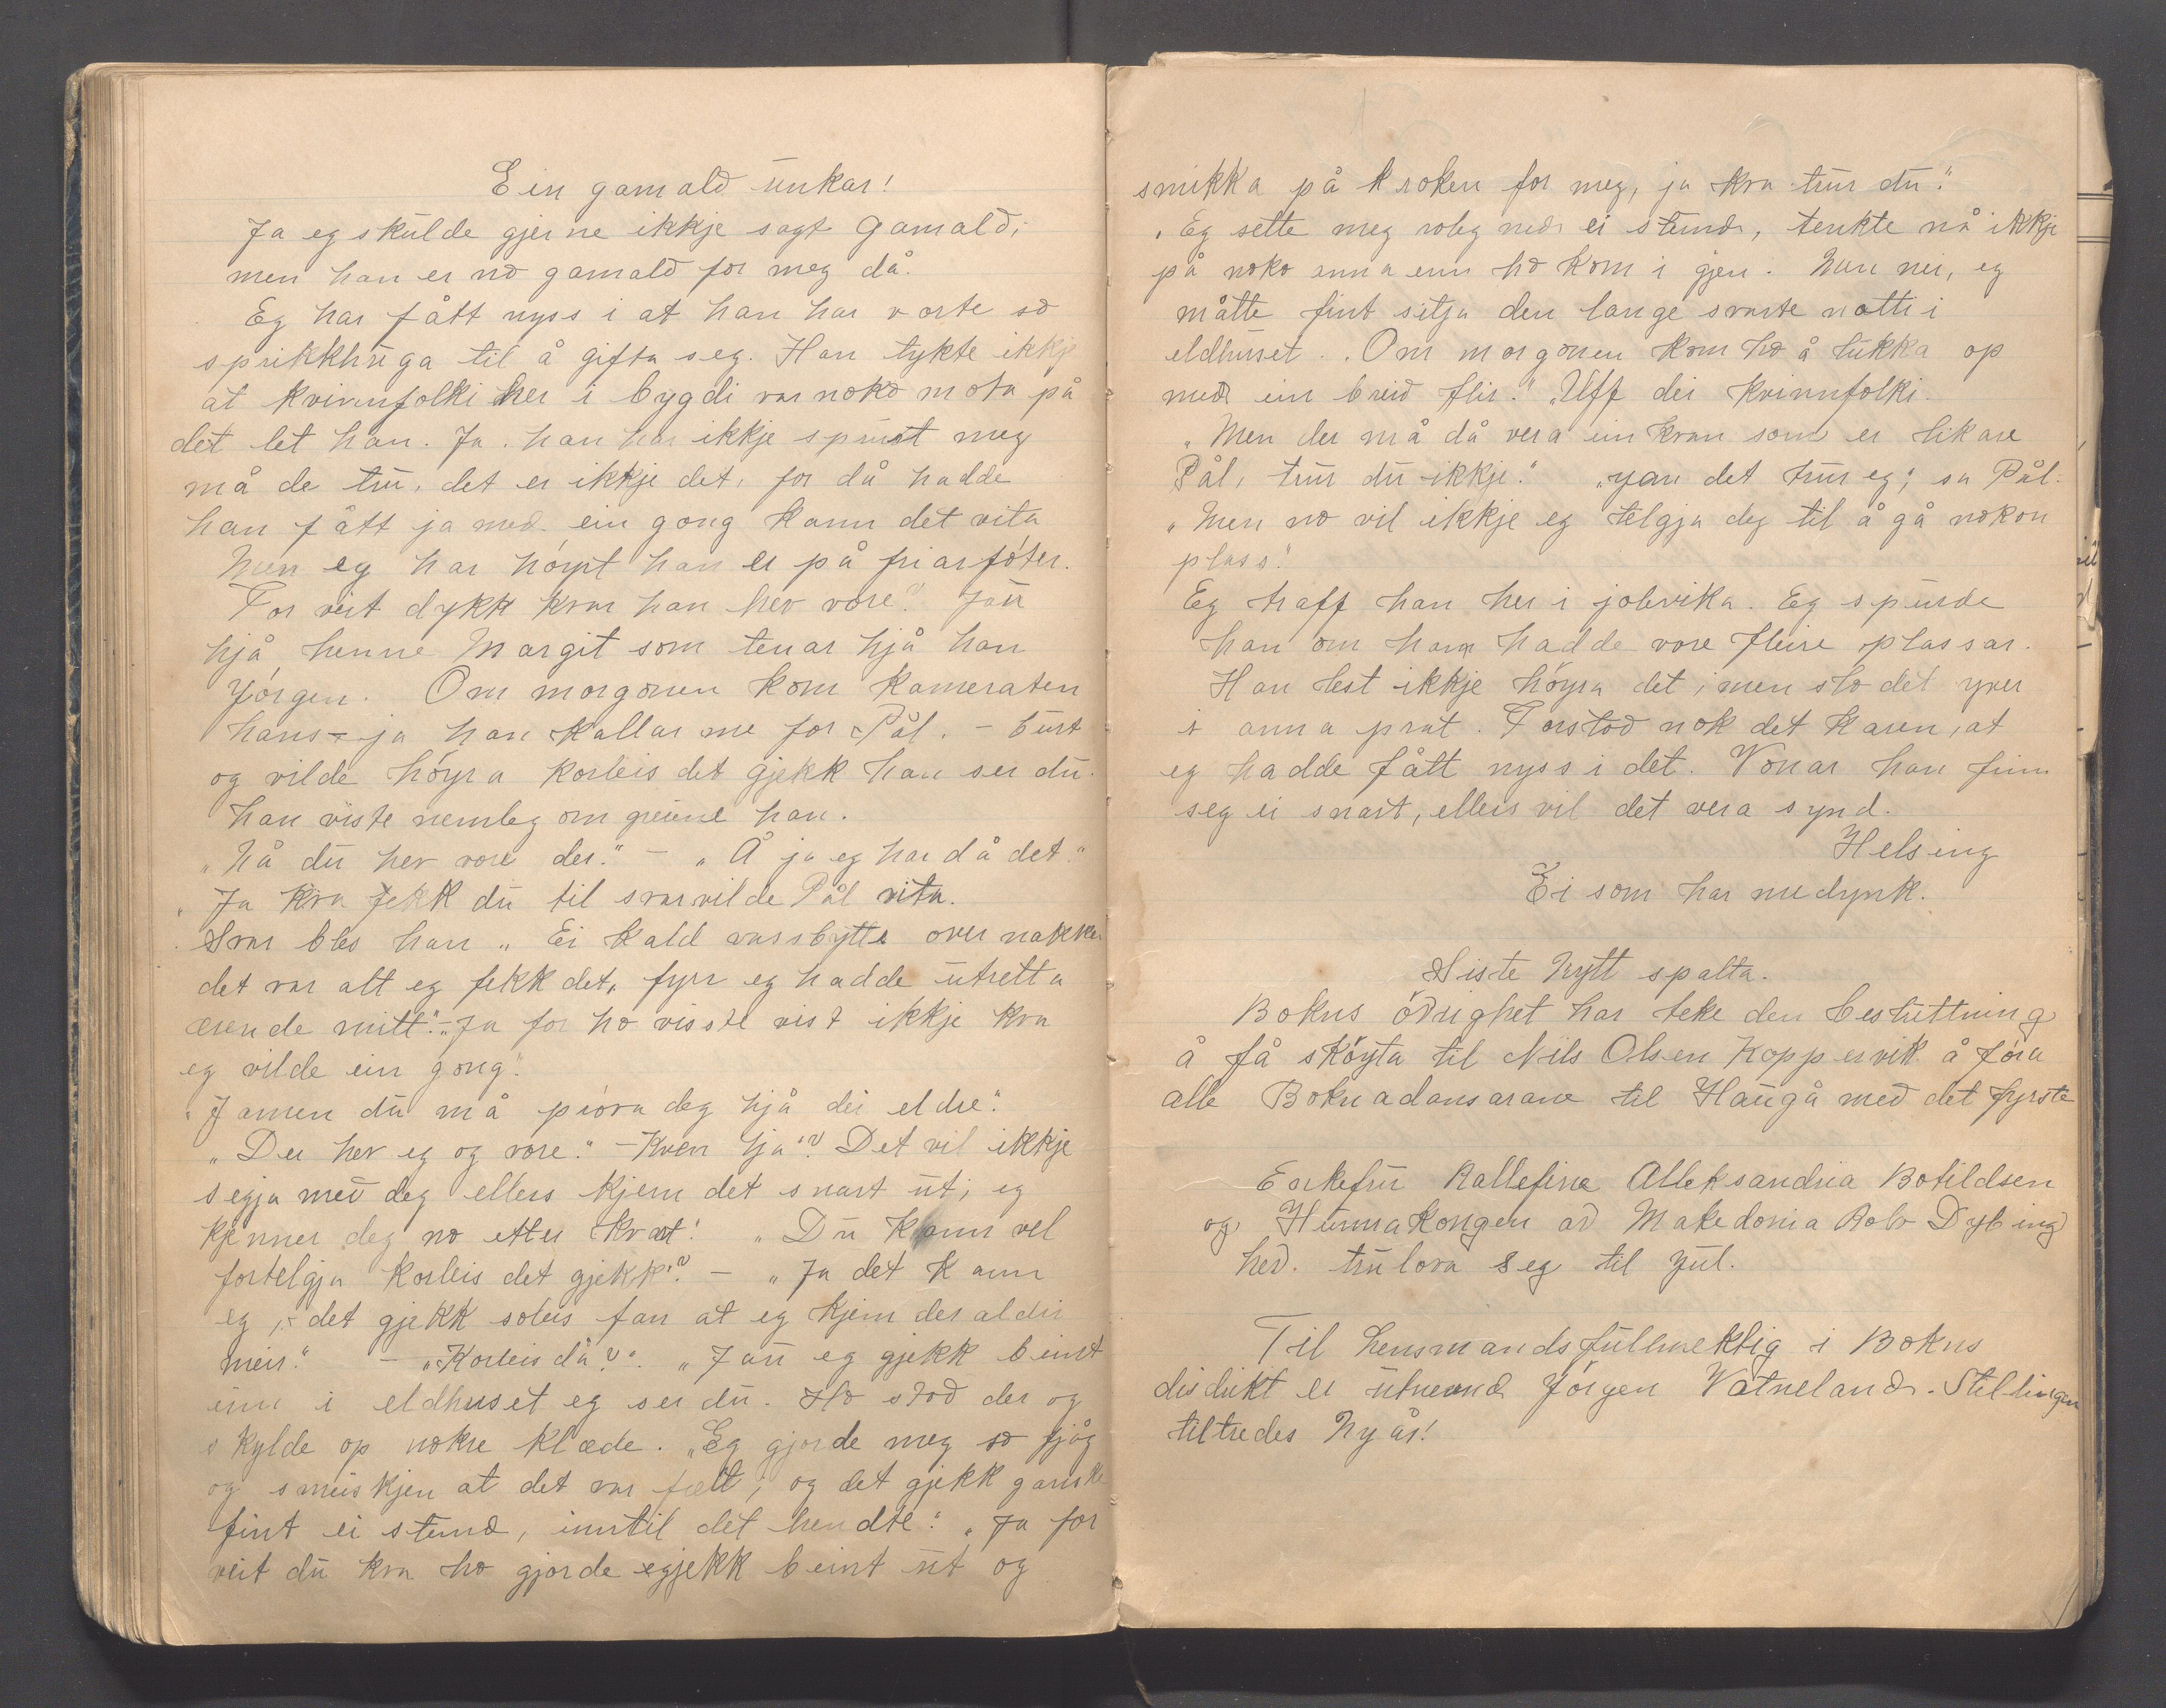 Ein gamald unkar!
Ja eg skulde gjerne ikkje sagt gamald;
men han er no gamald for meg då.
Eg har fått nyss i at han har vorte so
sprikkhuga til å gifta seg. Han tykte ikkje
at kvinnfolki her i bygdi var noko mota på
det let han. Ja, han har ikkje spurt meg
må de tru, det er ikkje det, for då hadde
han fått ja med ein gong kann det vita
Men eg har höyrt han er på friarföter.
For veit dykk kvar han hev vore? Jau
hjå henne Margit som tenar hjå han
Jörgen. Om morgonen kom kameraten
hans - ja han kallar me for Pål. - burt
og vilde höyra korleis det gjekk han ser du.
han viste nemleg om greiune han.
"Nå du hev vore der." - "Å ja eg har då det."
"Ja kva fekk du til svar vilde Pål vita.
Svar bles han "Ei kald vassbytte over nakken
det var alt eg fekk det, fyrr eg hadde utretta
ærende mitt." "Ja for ho visste vist ikkje kva
eg vilde ein gong."
"Jamen du må pröva deg hjå dei eldre."
"Der hev eg og vore." - Kven hjå"? Det vil ikkje
segja med deg ellers kjem det snart ut; eg
kjenner deg no etter kvart! "Du kann vel
fortelgja korleis det gjekk"? - "Ja det kann
eg, det gjekk soleis fan at eg kjem der aldri
meir." - "Korleis då?". "Jau eg gjekk beint
inn i eldhuset eg ser du. Ho stod der og
skylde op nokre klæde. "Eg gjorde meg so fjåg
og smeiskjen at det var fælt, og det gjekk ganske
fint ei stund, inntil det hendte." "Ja for
veit du kva ho gjorde gjekk beint ut og
smikka på kroken for meg, ja kva trur du."
"Eg sette meg roleg ned ei stund, tenkte nå ikkje
på noko anna enn ho kom i gjen. Nen nei, eg
måtte fint sitja den lange svarte natti i
eldhuset. Om morgonen kom ho å lukka op
med ein breid flir." "Uff dei kvinnfolki.
"Men der må då vera ein kvan som er likare
Pål, trur du ikkje." "Jau det trur eg; sa Pål.
"Men no vil ikkje eg telgja deg til å gå nokon
plass."
Eg traff han her i jolevika. Eg spurde
han om han hadde vore fleire plassar.
Han lest ikkje höyra det, men slo det yver
i anna prat. Forstod nok det karen, at
eg hadde fått nyss i det. Vonar han finn
seg ei snart, elleis vil det vera synd.
Helsing
Ei som har medynk.
Siste Nytt spalta.
Bokns övrighet har teke den beslutttning
å få sköyta til Nils Olsen Koppervik å föra
alle Boknadansarane til Haugå med det fyrste
Enkefru Rallefine Alleksandria Botildsen
og Hunnakongen av Makedonia Rolv Dybing
hev. trulova seg til jul.
Til Lensmandsfullmektig i Bokns
distrikt er utnevnd Jörgen Vatneland. Stellingen
tiltredes Nyår!